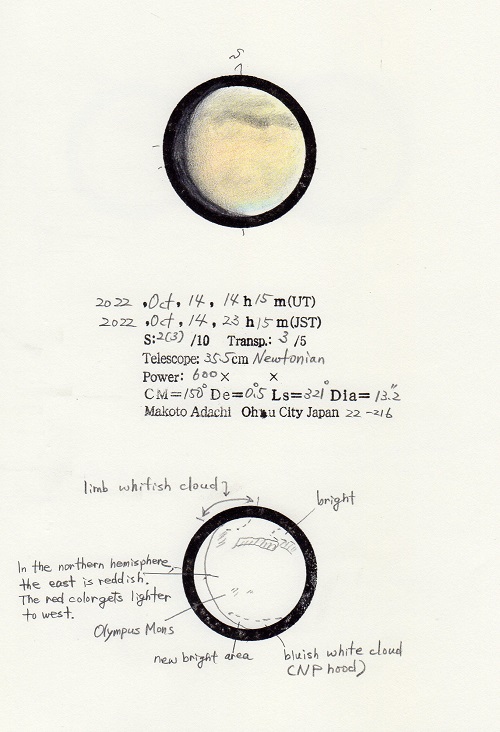 S
2022 , Oct , 14 , 14 h 15 m (UT)
2022 , Oct , 14 , 23 h 15 m (JST)
S: 2(3) /10 Transp.: 3 /5
Telescope: 35.5cm Newtonian
Power: 600 × ×
CM=150° De=0.5° Ls=321° Dia= 13.2"
Makoto Adachi Ohtsu City Japan 22-216
limb whitish cloud
bright
In the northern hemisphere,
the east is reddish.
The red color gets lighter
to west.
Olympus Mons
new bright area
bluish white cloud
(NP hood)